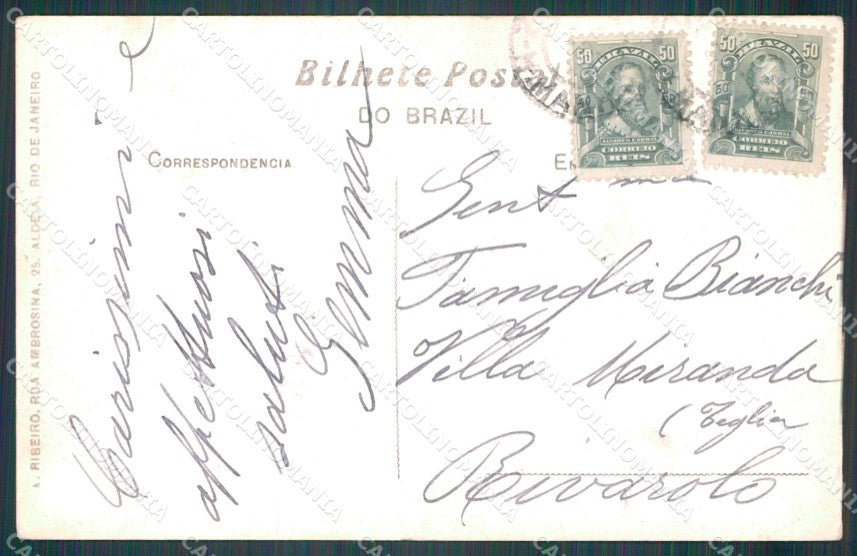 Bilhete Postal
DO BRAZIL
CORRESPONDENCIA
A. RIBEIRO, RUA AMBROSINA, 25. ALDEA, RIO DE JANEIRO
Carissimi e
affettuosi
saluti
Gemma
50 BRAZIL 50
ALVARES CABRAL
CORREIO
REIS
50 BRAZIL 50
ALVARES CABRAL
CORREIO
REIS
Gent ma
Famiglia Bianchi
Villa Miranda
(Teglia
Rivarolo
CARTOLINOMANIA